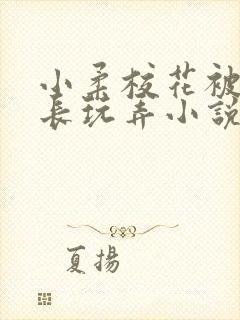 小柔校花被
長玩弄小說
夏揚